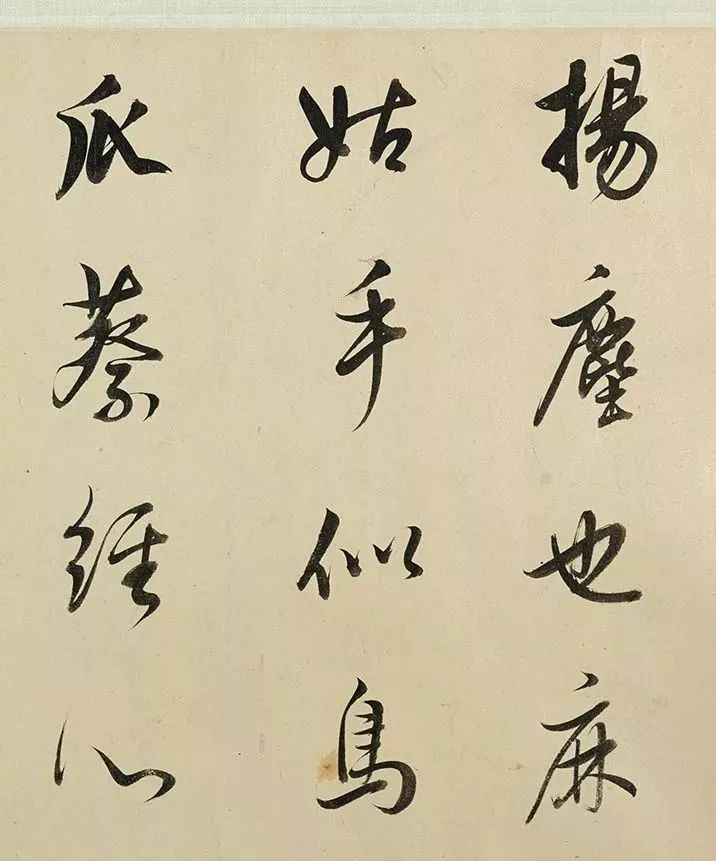 揚塵也麻
姑手似鳥
爪蔡經心